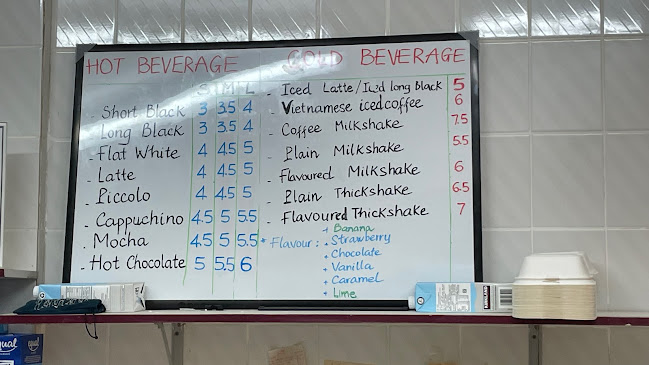 HOT BEVERAGE
S M L
- Short Black 3 3.5 4
- Long Black 3 3.5 4
- Flat White 4 4.5 5
- Latte 4 4.5 5
- Piccolo 4 4.5 5
- Cappuchino 4.5 5 5.5
- Mocha 4.5 5 5.5
- Hot Chocolate 5 5.5 6
COLD BEVERAGE
- Iced Latte/Iced long black 5
- Vietnamese iced coffee 6
- Coffee Milkshake 7.5
- Plain Milkshake 5.5
- Flavoured Milkshake 6
- Plain Thickshake 6.5
- Flavoured Thickshake 7
* Flavour:
+ Banana
+ Strawberry
+ Chocolate
+ Vanilla
+ Caramel
+ Lime
equal